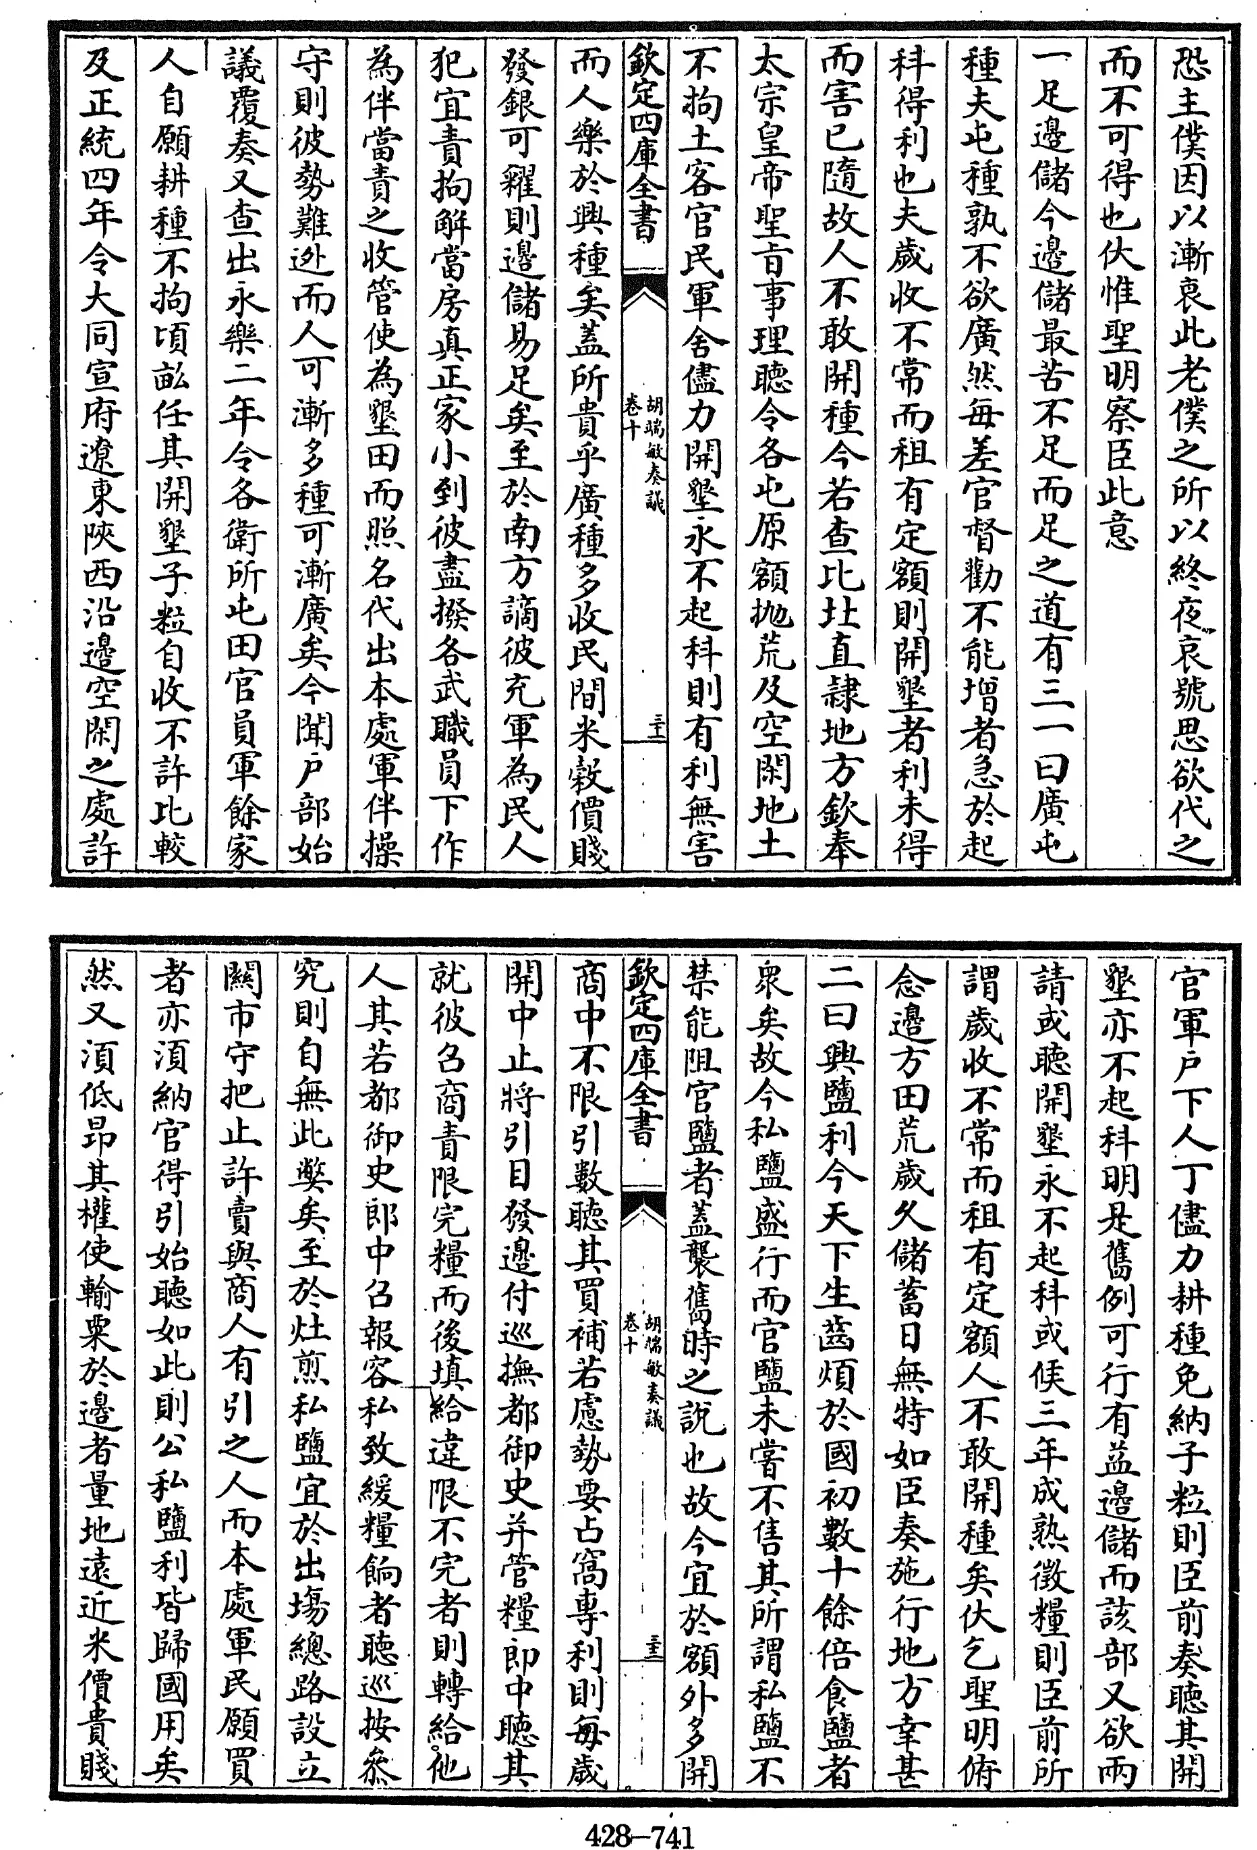 恐主僕因以漸衰此老僕之所以終夜哀號思欲代之
而不可得也伏惟聖明察臣此意
一足邊儲今邊儲最苦不足而足之道有三一曰廣屯
種夫屯種孰不欲廣然每差官督勸不能增者急於起
科得利也夫歲收不常而租有定額則開墾者利未得
而害已隨故人不敢開種今若查比北直隷地方欽奉
太宗皇帝聖旨事理聽令各屯原額抛荒及空閑地土
不拘土客官民軍舍儘力開墾永不起科則有利無害
欽定四庫全書
胡端敏奏議
卷十
而人樂於興種矣蓋所貴乎廣種多收民間米穀價賤
發銀可糴則邊儲易足矣至於南方謫彼充軍為民人
犯宜責拘解當房真正家小到彼盡撥各武職員下作
為伴當責之收管使為墾田而照名代出本處軍伴操
守則彼勢難逃而人可漸多種可漸廣矣今聞戸部始
議覆奏又查出永樂二年令各衛所屯田官員軍餘家
人自願耕種不拘頃畝任其開墾子粒自收不許比較
及正統四年令大同宣府遼東陝西沿邊空閑之處許
官軍戸下人丁儘力耕種免納子粒則臣前奏聽其開
墾亦不起科明是舊例可行有益邊儲而該部又欲兩
請或聽開墾永不起科或俟三年成熟徵糧則臣前所
謂歲收不常而租有定額人不敢開種矣伏乞聖明俯
念邊方田荒歲久儲蓄日無特如臣奏施行地方幸甚
二曰興鹽利今天下生齒煩於國初數十餘倍食鹽者
衆矣故今私鹽盛行而官鹽未嘗不售其所謂私鹽不
禁能阻官鹽者蓋襲舊時之說也故今宜於額外多開
欽定四庫全書
胡端敏奏議
卷十
商中不限引數聽其買補若慮勢要占窩專利則每歲
開中止將引目發邊付巡撫都御史并管糧郎中聽其
就彼召商責限完糧而後填給違限不完者則轉給他
人其若都御史郎中召報容私致緩糧餉者聽巡按叅
究則自無此弊矣至於灶煎私鹽宜於出場總路設立
關市守把止許賣與商人有引之人而本處軍民願買
者亦須納官得引始聽如此則公私鹽利皆歸國用矣
然又須低昂其權使輸粟於邊者量地遠近米價貴賤
428-741